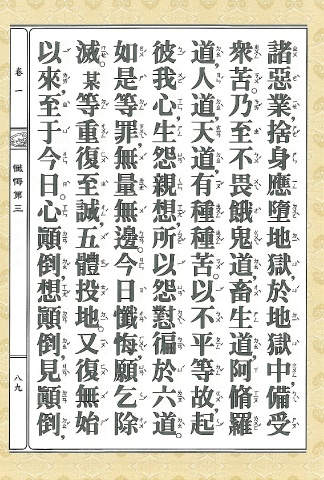 諸惡業，捨身應墮地獄，於地獄中備受
眾苦。乃至不畏餓鬼道，畜生道，阿脩羅
道，人道，天道，有種種苦。以不平等故，起
彼我心，生怨親想，所以怨懟徧於六道。
如是等罪，無量無邊。今日懺悔，願乞除
滅。某等重復至誠，五體投地。又復無始
以來，至于今日。心顚倒，想顚倒，見顚倒，
卷一
懺悔第三
八九